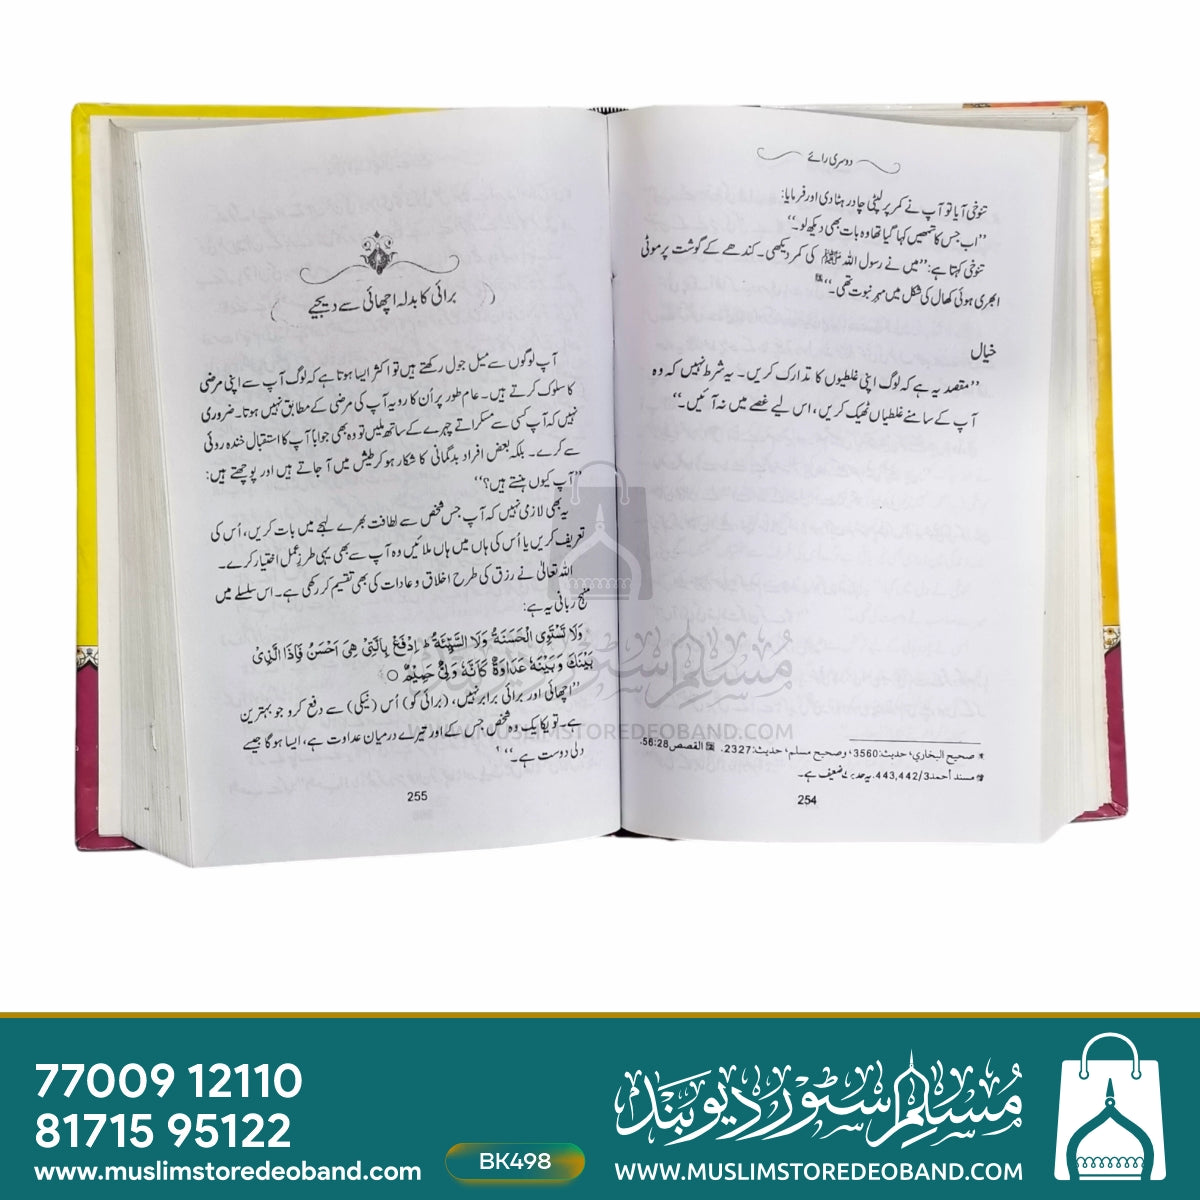 دوسری رائے
تنوخی آیا تو آپ نے کمر پر لپٹی چادر ہٹا دی اور فرمایا:
’’اب جس کا تمھیں کہا گیا تھا وہ بات بھی دیکھ لو۔‘‘
تنوخی کہتا ہے: ’’میں نے رسول اللہ ﷺ کی کمر دیکھی۔ کندھے کے گوشت پر موٹی
ابھری ہوئی کھال کی شکل میں مہرِ نبوت تھی۔‘‘
خیال
’’مقصد یہ ہے کہ لوگ اپنی غلطیوں کا تدارک کریں۔ یہ شرط نہیں کہ وہ
آپ کے سامنے غلطیاں ٹھیک کریں، اس لیے غصے میں نہ آئیں۔‘‘
صحيح البخاري، حديث:3560، وصحيح مسلم، حديث:2327. القصص 56:28.
مسند أحمد:443,442/3. یہ حدیث ضعیف ہے۔
254
برائی کا بدلہ اچھائی سے دیجیے
آپ لوگوں سے میل جول رکھتے ہیں تو اکثر ایسا ہوتا ہے کہ لوگ آپ سے اپنی مرضی
کا سلوک کرتے ہیں۔ عام طور پر اُن کا رویہ آپ کی مرضی کے مطابق نہیں ہوتا۔ ضروری
نہیں کہ آپ کسی سے مسکراتے چہرے کے ساتھ ملیں تو وہ بھی جواباً آپ کا استقبال خندہ روئی
سے کرے۔ بلکہ بعض افراد بدگمانی کا شکار ہو کر طیش میں آ جاتے ہیں اور پوچھتے ہیں:
’’آپ کیوں ہنستے ہیں؟‘‘
یہ بھی لازمی نہیں کہ آپ جس شخص سے لطافت بھرے لہجے میں بات کریں، اُس کی
تعریف کریں یا اُس کی ہاں میں ہاں ملائیں وہ آپ سے بھی یہی طرزِ عمل اختیار کرے۔
اللہ تعالیٰ نے رزق کی طرح اخلاق و عادات کی بھی تقسیم کر رکھی ہے۔ اس سلسلے میں
منہجِ ربانی یہ ہے:
وَلَا تَسْتَوِي الْحَسَنَةُ وَلَا السَّيِّئَةُ ط اِدْفَعْ بِالَّتِيْ هِيَ اَحْسَنُ فَاِذَا الَّذِيْ
بَيْنَكَ وَبَيْنَهٗ عَدَاوَةٌ كَاَنَّهٗ وَلِيٌّ حَمِيْمٌ ○
’’اچھائی اور برائی برابر نہیں، (برائی کو) اُس (نیکی) سے دفع کرو جو بہترین
ہے۔ تو یکایک وہ شخص جس کے اور تیرے درمیان عداوت ہے، ایسا ہو گا جیسے
دلی دوست ہے۔‘‘
255
مُسلم سٹور دیوبند
WWW.MUSLIMSTOREDEOBAND.COM
77009 12110
81715 95122
www.muslimstoredeoband.com
BK498
مُسلم سٹور دیوبند
WWW.MUSLIMSTOREDEOBAND.COM